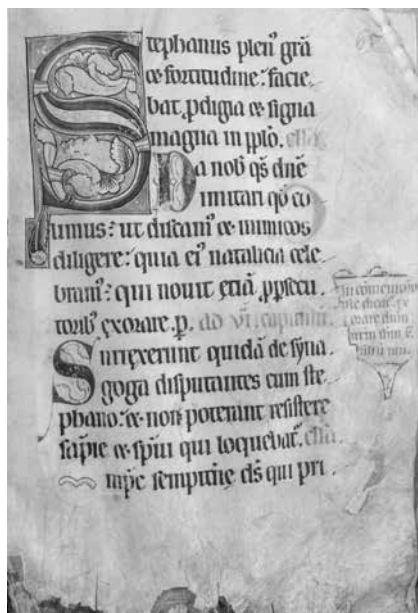 Stephanus plen' grã
& fortitudine: facie
bat ꝓdigia & signa
magna in pplo. cłła
Da nob' qs dñe
imitari qđ co
limus: ut discam' & inimicos
diligere: quia ei' natalicia cele
bram': qui nouit etiã ꝓ psecu
torib' exorare. p. ad vi. capitulũ.
Surrexerunt quidã de syna
goga disputantes cum ste
phano: & non poterant resistere
sapie & spui qui loquebat'. cłła
mpc sempitne ds qui pri